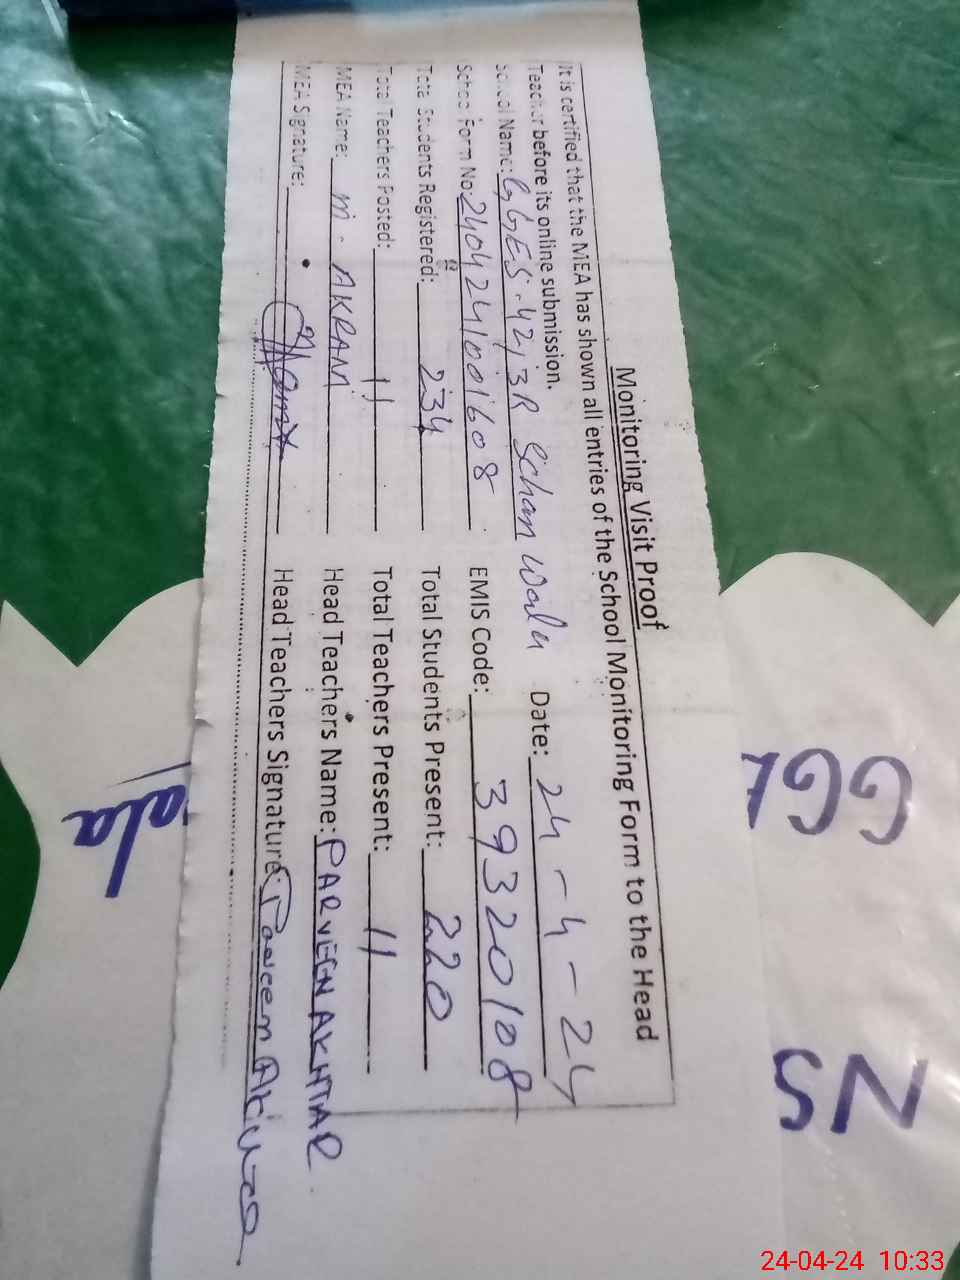 Monitoring Visit Proof
It is certified that the MEA has shown all entries of the School Monitoring Form to the Head
Teacher before its online submission.
School Name: GGES. 42/3R Schan Wala Date: 24-4-24
School Form No: 2404241001608 EMIS Code: 39320108
Total Students Registered: 234 Total Students Present: 220
Total Teachers Posted: 11 Total Teachers Present: 11
MEA Name: M. AKRAM Head Teachers Name: PARVEEN AKHTAR
MEA Signature: Head Teachers Signature: Parveen Akhtar
GGE
NS
ala
24-04-24 10:33